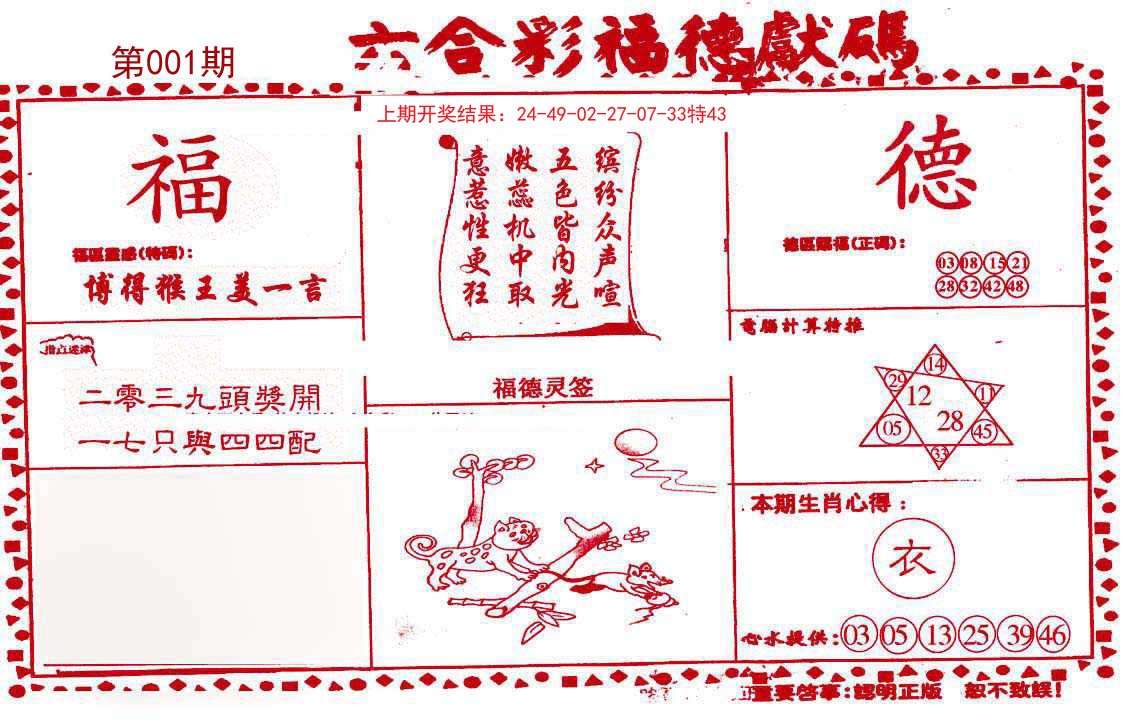 六合彩福德獻碼
第001期
上期开奖结果：24-49-02-27-07-33特43
福
福區靈感(特碼)：
博得猴王美一言
二零三九頭獎開
一七只與四四配
缤纷众声喧
五色皆内光
嫩蕊机中取
意惹性更狂
福德灵签
德
德區賜福(正碼)：
03 08 15 21
28 32 42 48
電腦計算特推
14
29 12 11
05 28 45
33
本期生肖心得：
衣
心水提供：03 05 13 25 39 46
重要啓事：認明正版 恕不致誤！